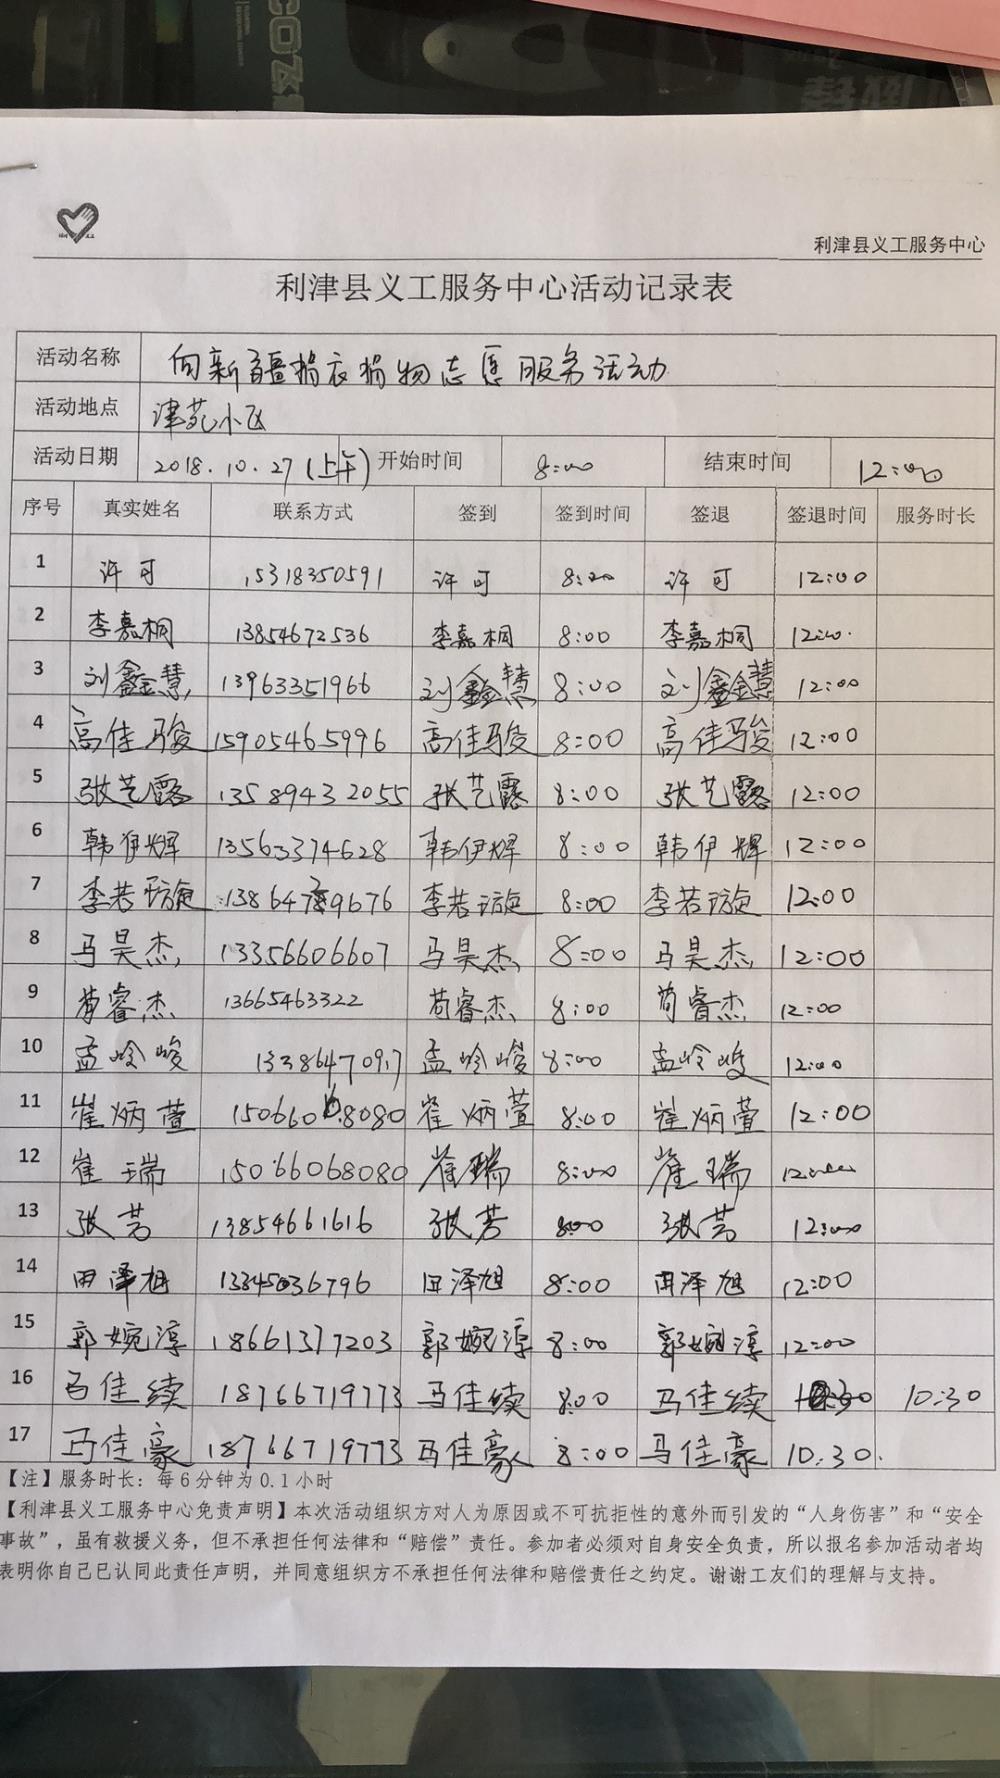 利津县义工服务中心
利津县义工服务中心活动记录表
活动名称 向新疆捐衣捐物志愿服务活动
活动地点 津苑小区
活动日期 2018.10.27(上午) 开始时间 8:00 结束时间 12:00
序号 真实姓名 联系方式 签到 签到时间 签退 签退时间 服务时长
1 许可 15318350591 许可 8:00 许可 12:00
2 李嘉桐 13854672536 李嘉桐 8:00 李嘉桐 12:00.
3 刘鑫慧 13963351966 刘鑫慧 8:00 刘鑫慧 12:00
4 高佳骏 15905465996 高佳骏 8:00 高佳骏 12:00
5 张艺露 13589432055 张艺露 8:00 张艺露 12:00
6 韩伊辉 13563374628 韩伊辉 8:00 韩伊辉 12:00
7 李若璇 8:00 李若璇 12:00
8 马昊杰 13356606607 马昊杰 8:00 马昊杰 12:00
9 苟睿杰 13665463322 苟睿杰 8:00 苟睿杰 12:00
10 孟岭峻 孟岭峻 8:00 孟岭峻 12:00
11 崔炳萱 15066068080 崔炳萱 8:00 崔炳萱 12:00
12 崔瑞 15066068080 崔瑞 8:00 崔瑞 12:00
13 张芳 13854661616 张芳 8:00 张芳 12:00
14 田泽旭 13345036796 田泽旭 8:00 田泽旭 12:00
15 郭婉淳 18661377203 郭婉淳 8:00 郭婉淳 12:00
16 马佳续 18766719773 马佳续 8:00 马佳续 10:30
17 马佳豪 18766719773 马佳豪 8:00 马佳豪 10.30.
【注】服务时长：每6分钟为0.1小时
【利津县义工服务中心免责声明】本次活动组织方对人为原因或不可抗拒性的意外而引发的“人身伤害”和“安全
事故”，虽有救援义务，但不承担任何法律和“赔偿”责任。参加者必须对自身安全负责，所以报名参加活动者均
表明你自己已认同此责任声明，并同意组织方不承担任何法律和赔偿责任之约定。谢谢工友们的理解与支持。